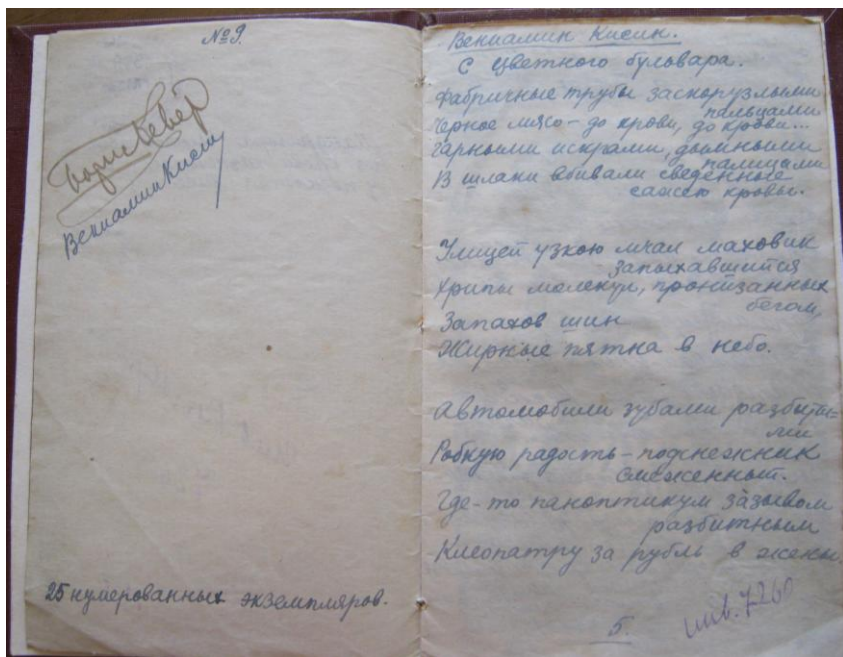 № 9.
Борис Кевер
Вениамин Кисин
25 нумерованных экземпляров.
Вениамин Кисин.
С цветного бульвара.
Фабричные трубы заскорузлыми
пальцами
Черное мясо - до крови, до крови...
Гарными искрами, дымными
палицами
В шлаки вбивали сведенные
сажею кровы.
Улицей узкою мчал маховик
запыхавшийся
Хрипы молекул, пронизанных
бегом,
Запахов шин
Жирные пятна в небо.
Автомобили зубами разбиты-
ми
Робкую радость - подснежник
смеженный.
Где-то паноптикум зазывом
разбитным
Клеопатру за рубль в жены.
5.
инв. 7260